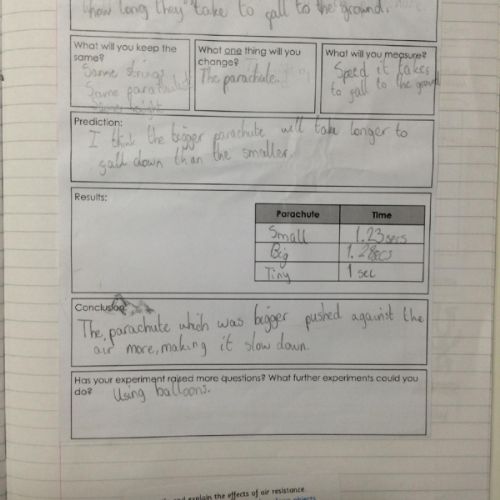 how long they take to fall to the ground.
What will you keep the
same?
Same strings
Same parachute
Same height
What one thing will you
change?
The parachute.
What will you measure?
Speed it takes
to fall to the ground
Prediction:
I think the bigger parachute will take longer to
fall down than the smaller.
Results:
Parachute Time
Small 1.23secs
Big 1.28secs
Tiny 1 sec
Conclusion:
The parachute which was bigger pushed against the
air more, making it slow down.
Has your experiment raised more questions? What further experiments could you
do? Using balloons.
and explain the effects of air resistance